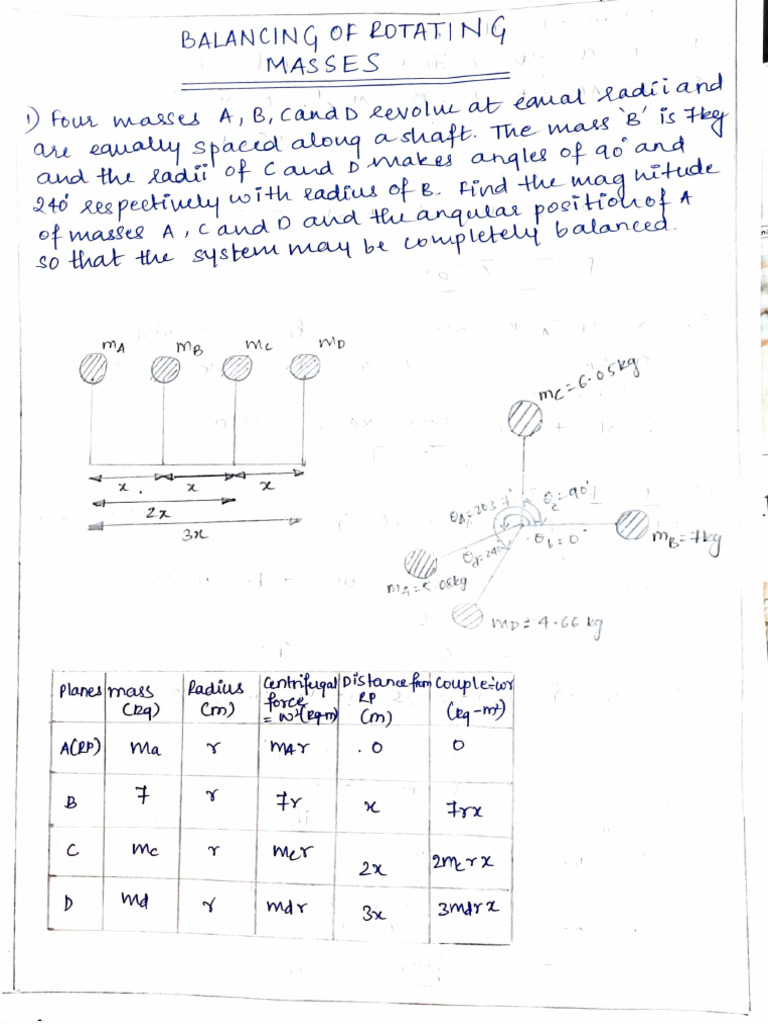 BALANCING OF ROTATING
MASSES
1) Four masses A, B, C and D revolve at equal radii and
are equally spaced along a shaft. The mass 'B' is 7kg
and the radii of C and D makes angles of 90° and
240° respectively with radius of B. Find the magnitude
of masses A, C and D and the angular position of A
so that the system may be completely balanced.
mA mB mC mD
x x x
2x
3x
mC = 6.05kg
θc = 90°
θb = 0°
mB = 7kg
mD = 4.66 kg
Planes mass (kg) Radius (m) Centrifugal force = w²(kg-m) Distance from RP (m) Couple ÷ w² (kg-m²)
A(RP) ma r mAr 0 0
B 7 r 7r x 7rx
C mc r mcr 2x 2mcrx
D md r mdr 3x 3mdrx